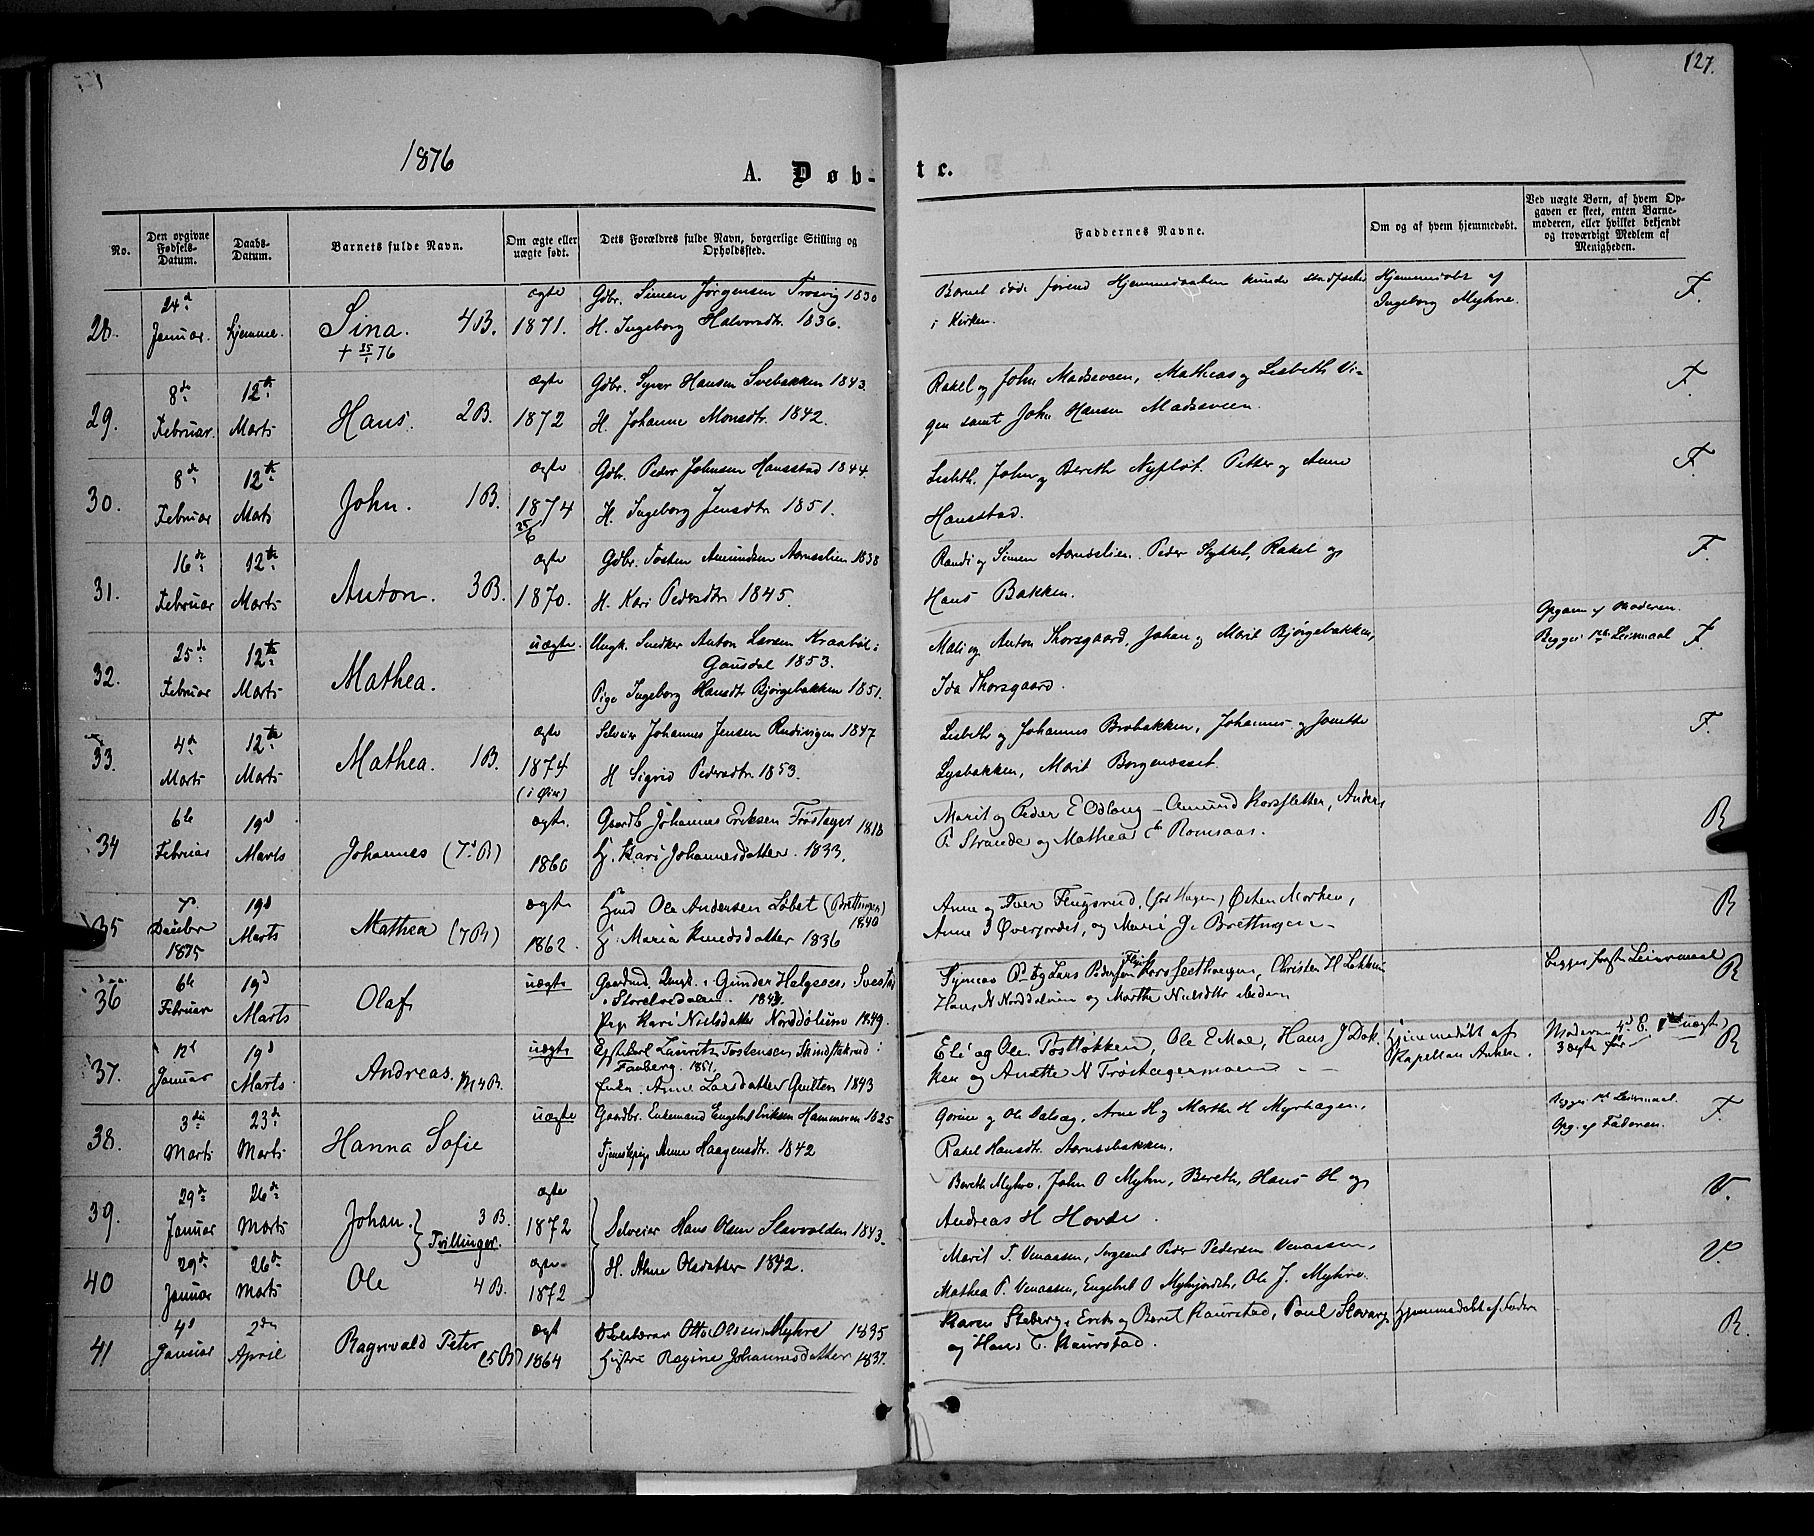 127.
1876
A. Døb-
te.
No.
Den opgivne Fødsels-Datum.
Daabs-Datum.
Barnets fulde Navn.
Om ægte eller uægte født.
Dets Forældres fulde Navn, borgerlige Stilling og Opholdssted.
Faddernes Navne.
Om og af hvem hjemmedøbt.
Ved uægte Børn, af hvem Opgaven er skeet, enten Barnemoderen, eller hvilket bekjendt og troværdigt Medlem af Menigheden.
28. 24d Januar. hjemme. Sina. 4B. ægte 1871.
Gdbr. Simen Jørgensen Trosvig 1830
H. Ingeborg Halvorsdtr. 1836.
Barnet døde førend Hjemmedaaben kunde stadfæstes
i Kirken.
Hjemmedøbt af
Ingeborg Myhre.
F.
29. 8de Februar. 12te Marts Hans. 2B. ægte 1872
Gdbr. Syver Hansen Svebakken 1843.
H. Johanne Monsdtr. 1842.
Rakel og John Madsveen, Mathias og Lisbeth Vi-
gen samt John Hansen Madsveen.
F.
30. 8de Februar 12te Marts John. 1B. ægte 1874 25/6
Gdbr. Peder Johnsen Hansstad 1844.
H. Ingeborg Jensdtr. 1851.
Lisbeth, John og Berith Nyfløt. Petter og Anne
Hansstad.
F.
31. 16de Februar 12te Marts Anton. 3B. ægte 1870.
Gdbr. Tosten Amundsen Aarnselien 1838
H. Kari Pedersdtr. 1845.
Randi og Simen Aarnselien. Peder Stykket, Rakel og
Hans Bakken.
F.
32. 25de Februar 12te Marts Mathea. uægte.
Ungk. Snedker Anton Larsen Kraabøl i
Gausdal 1853.
Pige Ingeborg Hansdtr. Bjørgebakken 1851.
Mali og Anton Thorsgaard, Johan og Marit Bjørgebakken,
Ida Thorsgaard.
Opgave af Moderen.
Begges 1ste Leiermaal
F.
33. 4de Marts 12te Marts Mathea. 1B. ægte 1874 (i Øier)
Selveier Johannes Jensen Rudivigen 1847
H Sigrid Pedersdtr. 1853.
Lisbeth og Johannes Brobakken, Johannes og Jonette
Lysbakken, Marit Borgenæsset.
F.
34 6te Februar 19d Marts Johannes (7d B) ægte. 1860
Gaardb. Johannes Eriksen Trøstager
H. Kari Johannesdatter. 1833.
Marit og Peder E Odlong - Amund Korsfletten, Anders
P. Strande og Mathea Romsaas.
R
35 1875 19d Marts Mathea (7B) ægte 1862.
Ole Andersen Løbet (Brettingen) 1840
H. Maria Knudsdatter 1836
Anne og Iver Flugsrud, Østen Morken,
Anne J Øverjordet, og Marie J. Brettingen
R
36 6te Februar 19d Marts Olaf uægte
Ungk. Gunder Helgesen,
i Storelvedalen.
Pige Kari Nielsdatter Norddølum 1849.
Lars Pedersen Christen H
Hans N Norddølum og Marthe Nielsdtr ibidem
begges første Leiermaal
R
37. 12d Januar 19d Marts Andreas. M4B. uægte
Lauritz Tostensen Skindstakrud i
Faaberg. 1851.
Enke. Anne Larsdatter Qvilten 1843
Eli og Ole Tostløkken, Ole E Moe, Hans J Dok-
ken og Anette N Trøstagermoen
Hjemmedøbt af
Kapellan Anker.
Moderen 4d B. 1ste uægte
3 ægte før
R
38. 3die Marts 23de Marts Hanna Sofie uægte
Gaardbr. Enkemand Engebret Eriksen Hammeren 1825
Tjenestepige Anne Haagensdtr. 1842
Gorine og Ole Dalsæg, Arne H og Marthe H Myrhagen,
Rakel Hansdtr. Aarnsebakken.
Begges 1ste Leiermaal.
Opg. af Faderen.
F
39. 29de Januar 26de Marts Johan. 3B. ægte 1872
Tvillinger.
Selveier Hans Olsen Slavvolden 1843.
Berith Myhre, John O Myhre, Berith, Hans H og
Andreas H Hovde.
V.
40 29de Januar 26de Marts Ole 4B. ægte 1872
H. Anne Olsdatter 1842.
Marit T. Venaassen, Sergeant Peder Pedersen Venaassen,
Mathea P. Venaassen, Engebret O Myhrjordet, Ole J. Myhre.
V.
41 4d Januar 2den April Ragnvald Peter (5B) ægt 1864
Otto Olsen Myhre 1835
Hustru Regine Johannesdatter 1837.
Karen Steberg, Erik og Beret Kaurstad, Poul Slavang
og Hans T. Kaurstad.
Hjemmedøbt af Faderen
R.